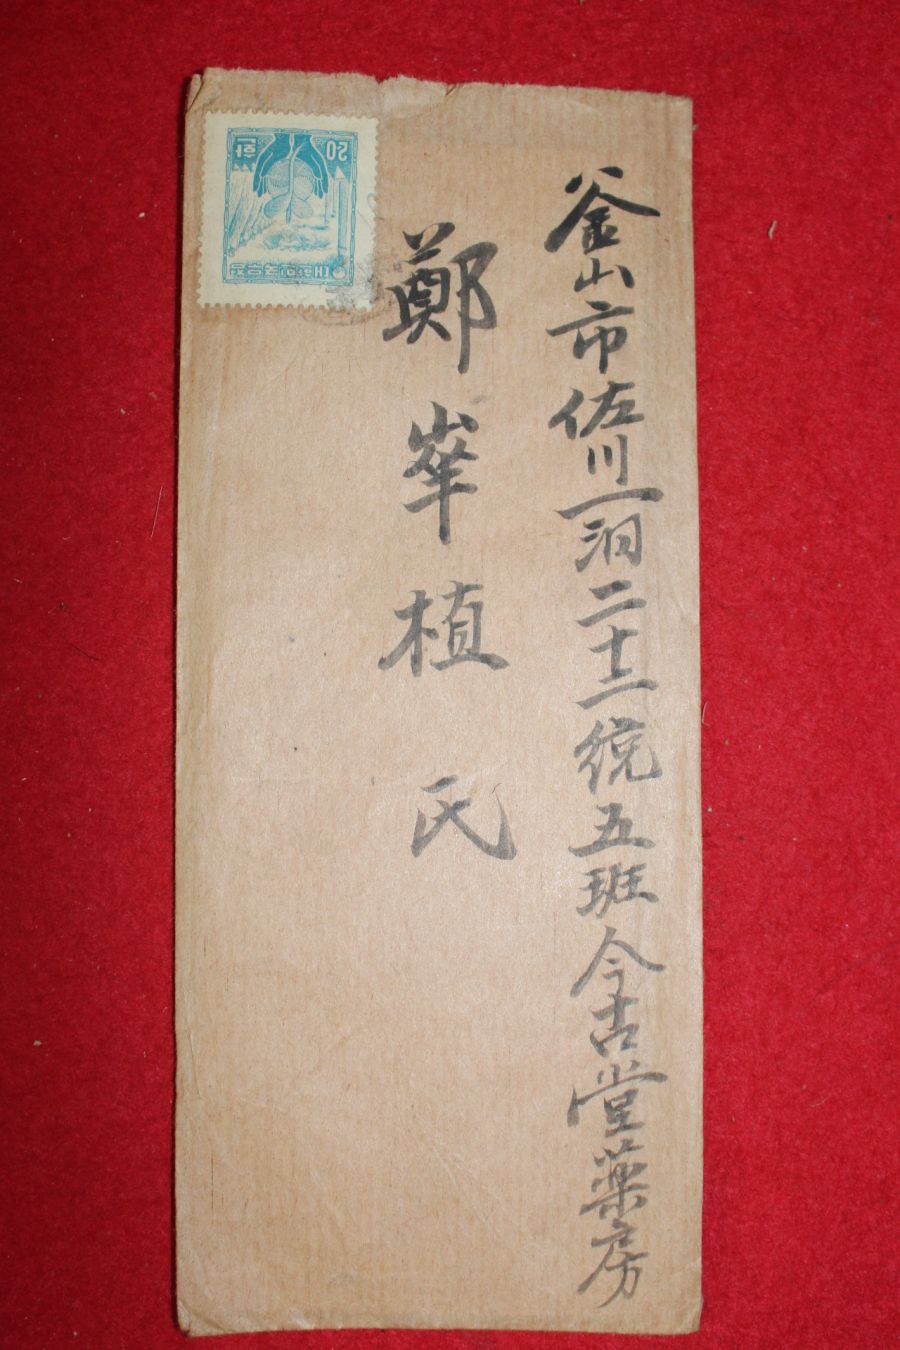 釜山市佐川一洞二十二統五班今古堂薬房
鄭崋植氏
20 환
대한민국우표